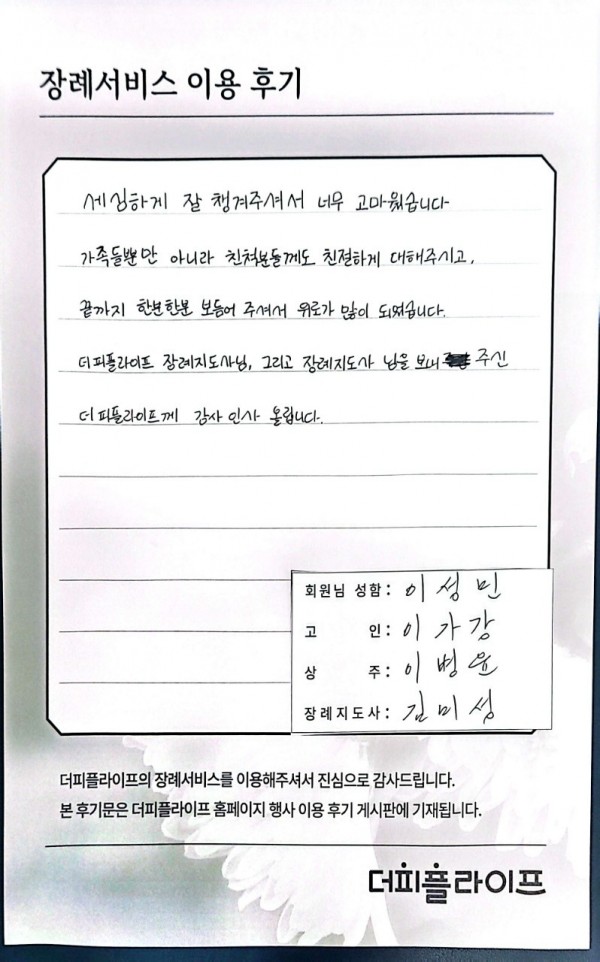 장례서비스 이용 후기
세심하게 잘 챙겨주셔서 너무 고마웠습니다
가족들뿐만 아니라 친척분들께도 친절하게 대해주시고,
끝까지 한분한분 보듬어 주셔서 위로가 많이 되었습니다.
더피플라이프 장례지도사님, 그리고 장례지도사 님을 보내 주신
더피플라이프께 감사 인사 올립니다.
회원님 성함: 이성민
고 인: 이가강
상 주: 이병윤
장례지도사: 김미성
더피플라이프의 장례서비스를 이용해주셔서 진심으로 감사드립니다.
본 후기문은 더피플라이프 홈페이지 행사 이용 후기 게시판에 기재됩니다.
더피플라이프